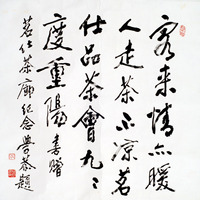 客来情亦暖
人走茶不凉茗
仕品茶會九々
度重陽 書贈
茗仕茶廊紀念 恭題